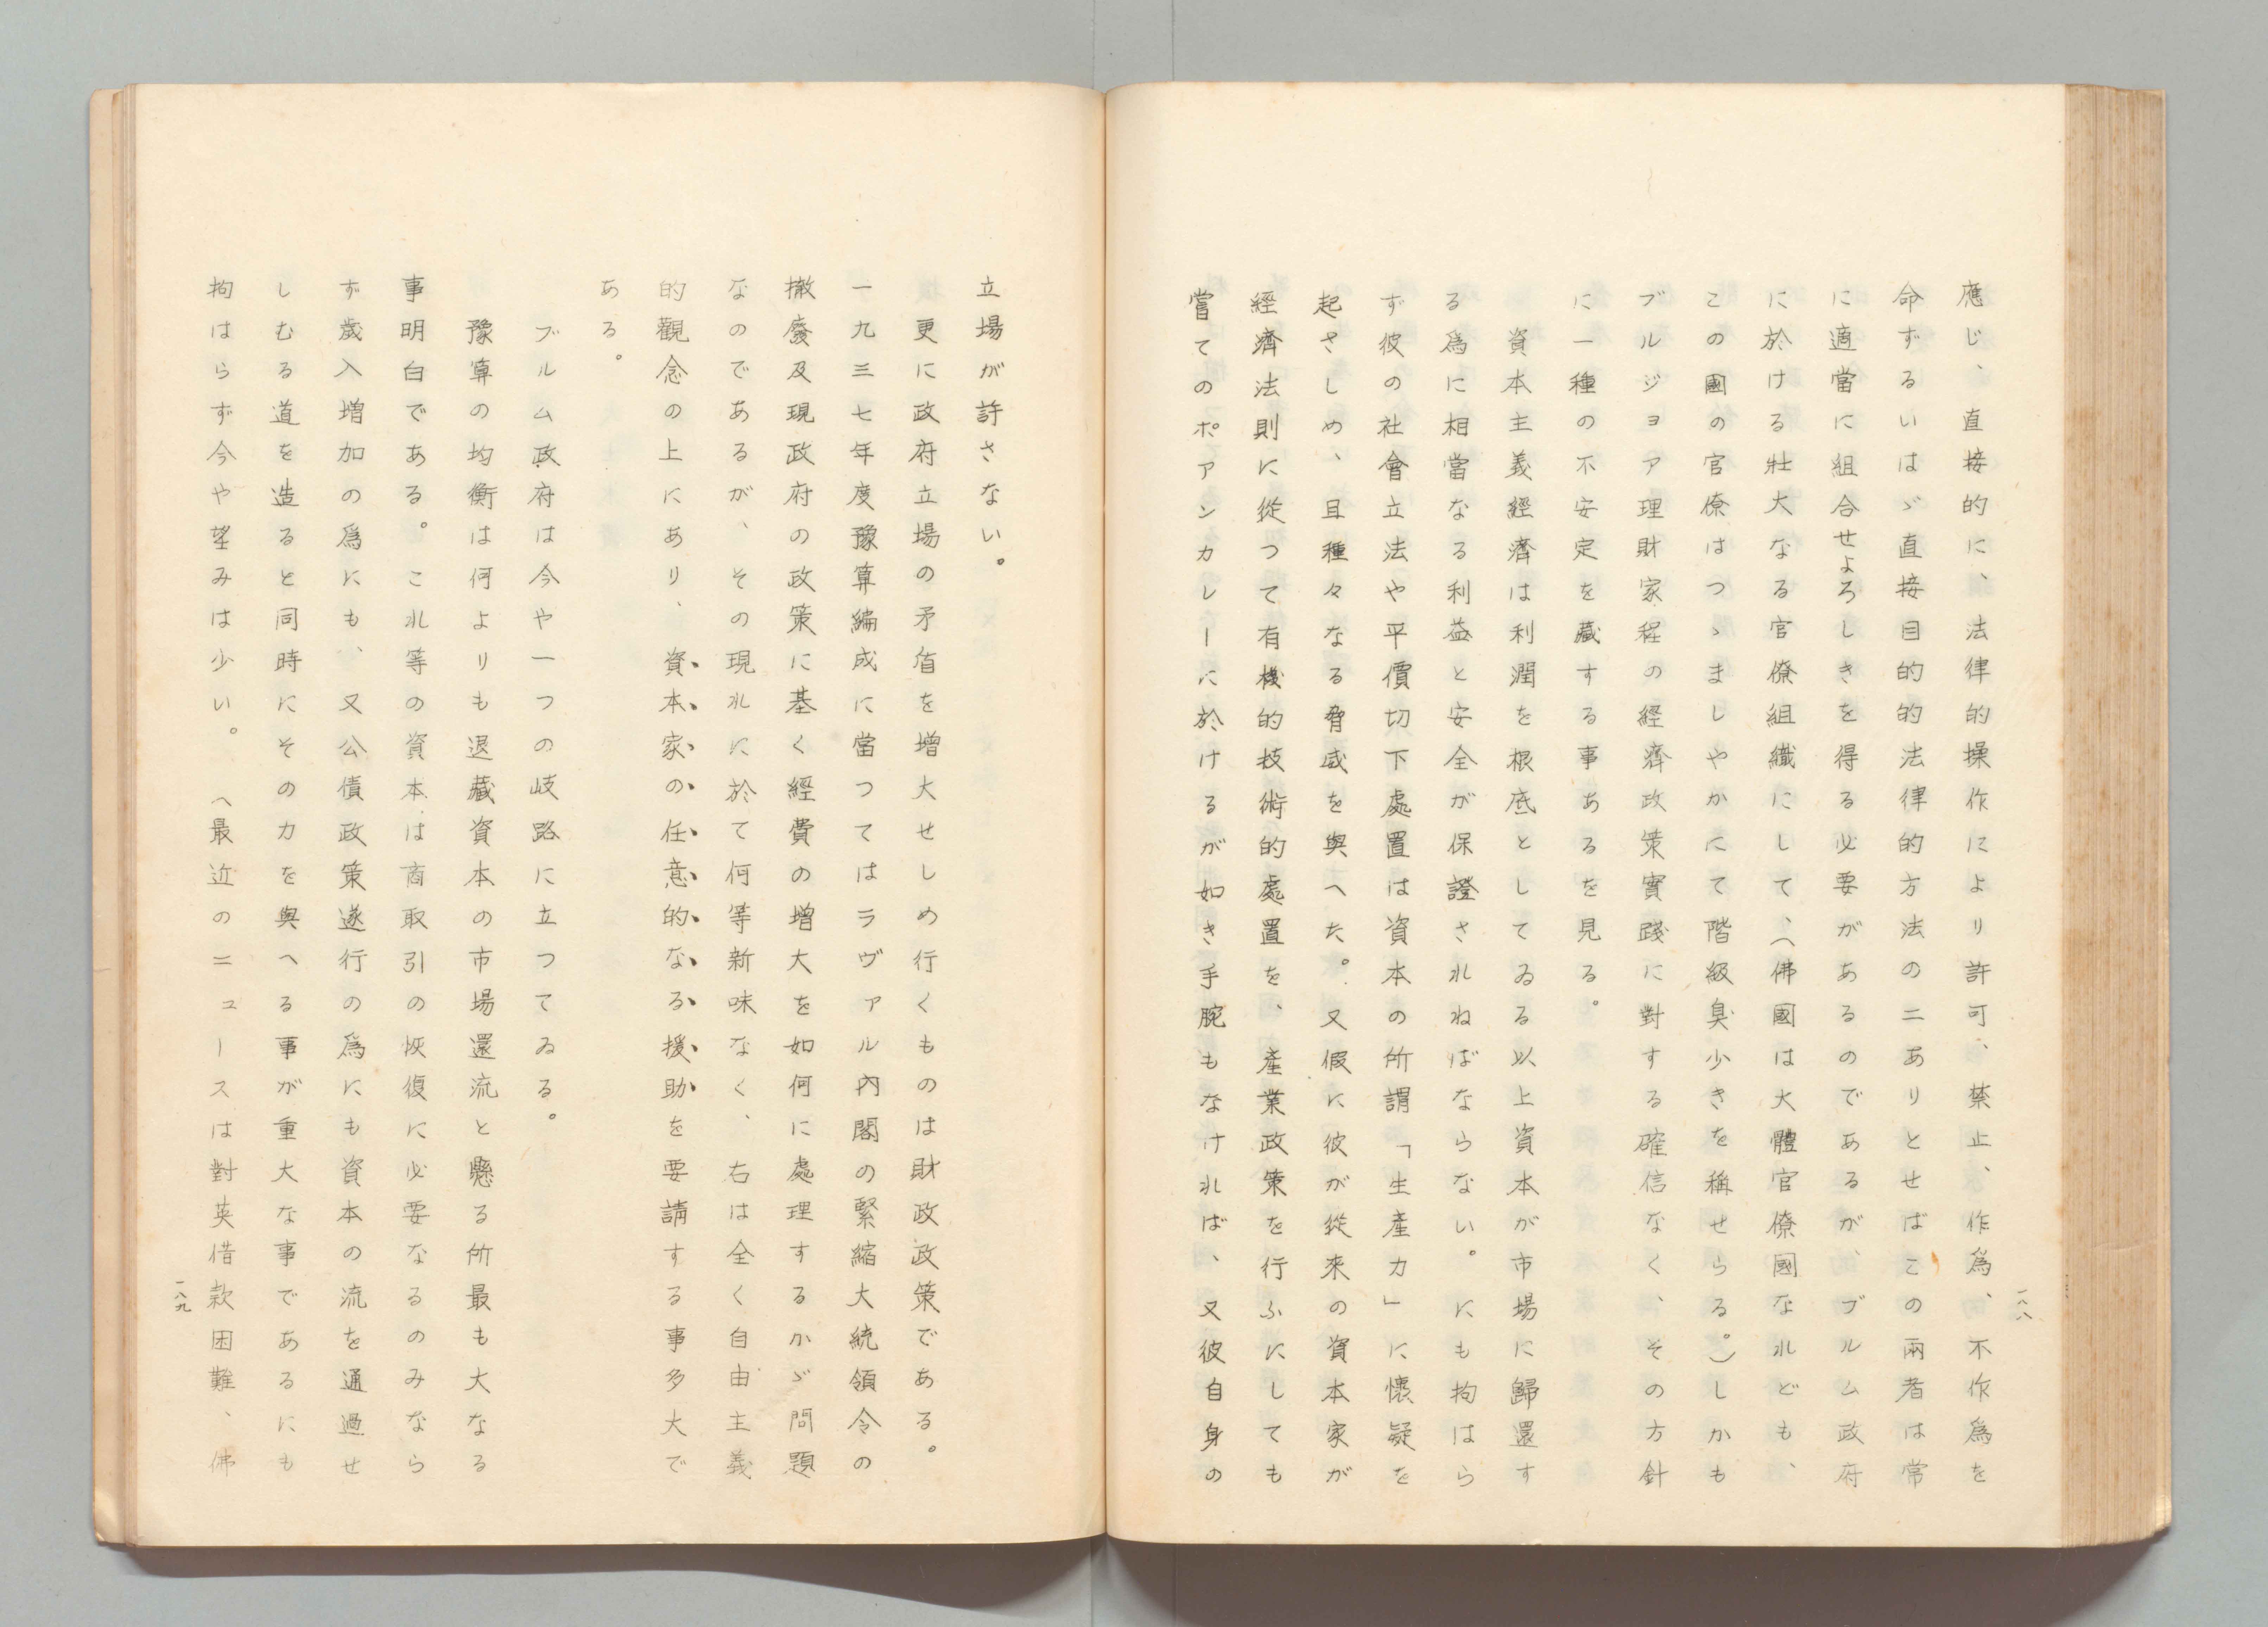 應じ、直接的に、法律的操作により許可、禁止、作爲、不作爲を
命ずるいはゞ直接目的的法律的方法の二ありとせばこの兩者は常
に適當に組合せよろしきを得る必要があるのであるが、ブルム政府
に於ける壯大なる官僚組織にして、(佛國は大體官僚國なれども、
この國の官僚はつゝましやかにて階級臭少きを稱せらる。)しかも
ブルジョア理財家程の経濟政策實踐に對する確信なく、その方針
に一種の不安定を藏する事あるを見る。
資本主義經濟は利潤を根底としてゐる以上資本が市場に歸還す
る爲に相當なる利益と安全が保證されねばならない。にも拘はら
ず彼の社會立法や平價切下處置は資本の所謂「生產力」に懷疑を
起さしめ、且種々なる脅威を與へた。又假に彼が從來の資本家が
經濟法則に從つて有機的技術的處置を、產業政策を行ふにしても
嘗てのポアンカレーに於けるが如き手腕もなければ、又彼自身の
一八八
立場が許さない。
更に政府立場の矛盾を增大せしめ行くものは財政政策である。
一九三七年度豫算編成に當つてはラヴァル內閣の緊縮大統領令の
撤廢及現政府の政策に基く經費の增大を如何に處理するかゞ問題
なのであるが、その現れに於て何等新味なく、右は全く自由主義
的觀念の上にあり、資本家の任意的なる援助を要請する事多大で
ある。
ブルム政府は今や一つの岐路に立つてゐる。
豫算の均衡は何よりも退藏資本の市場還流と懸る所最も大なる
事明白である。これ等の資本は商取引の恢復に必要なるのみなら
ず歲入增加の爲にも、又公債政策遂行の爲にも資本の流を通過せ
しむる道を造ると同時にその力を與へる事が重大な事であるにも
拘はらず今や望みは少い。(最近のニュースは對英借款困難、佛
一八九